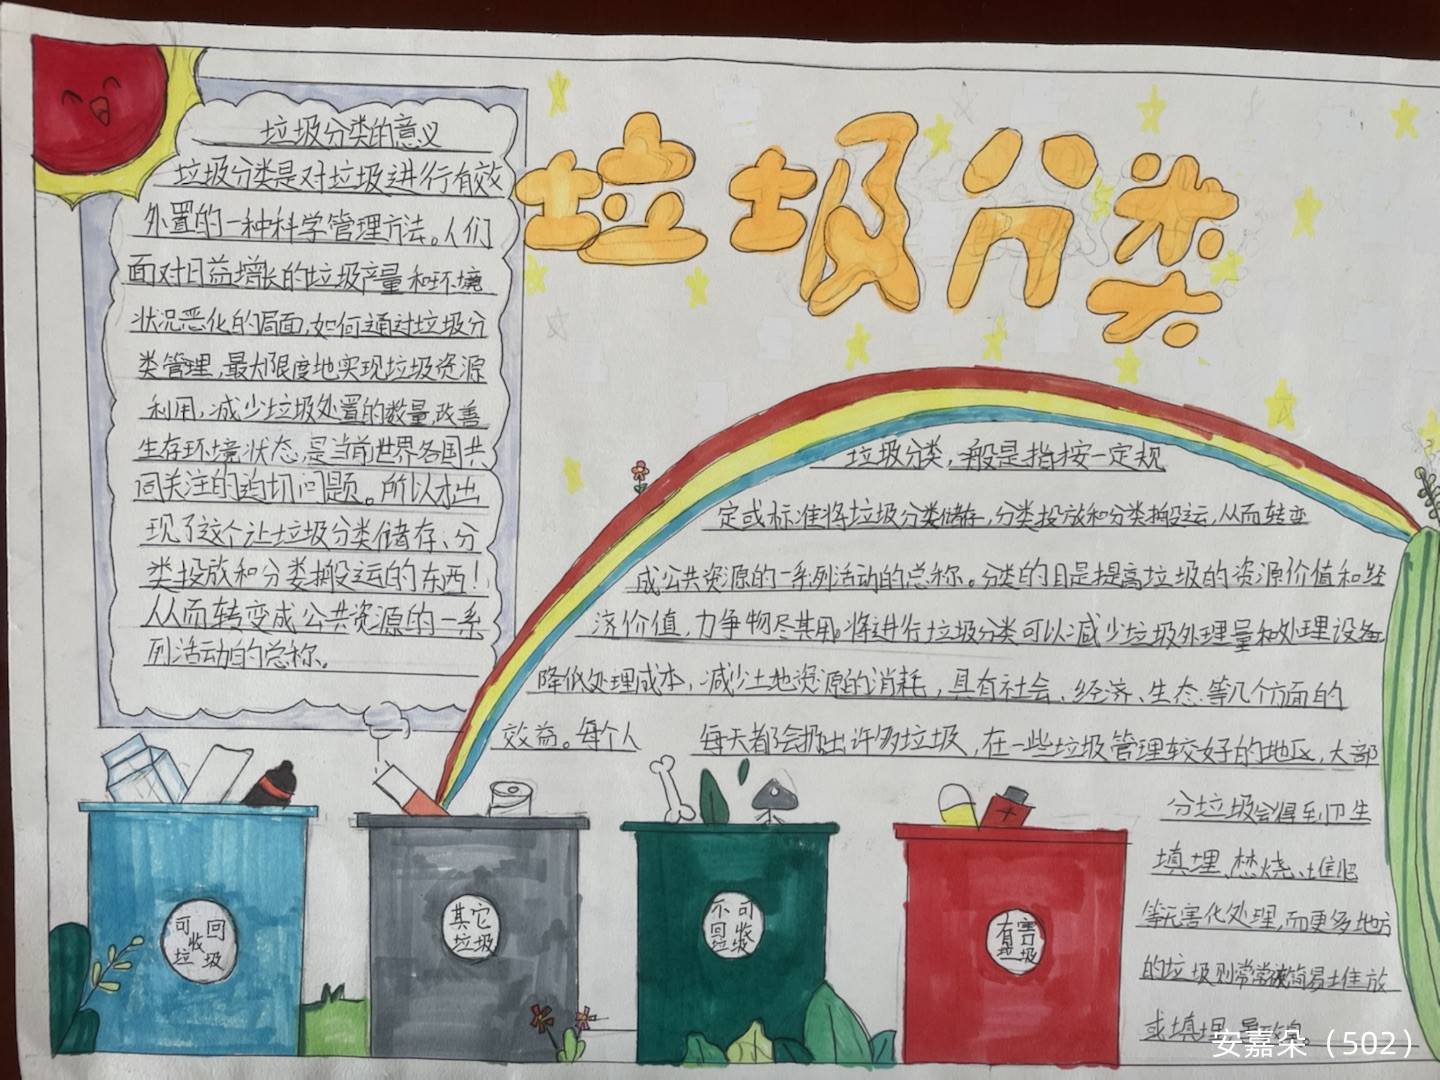 垃圾分类
垃圾分类的意义
垃圾分类是对垃圾进行有效
处置的一种科学管理方法。人们
面对日益增长的垃圾产量和环境
状况恶化的局面，如何通过垃圾分
类管理，最大限度地实现垃圾资源
利用，减少垃圾处置的数量，改善
生存环境状态，是当前世界各国共
同关注的迫切问题。所以才出
现了这个让垃圾分类储存、分
类投放和分类搬运的东西！
从而转变成公共资源的一系
列活动的总称。
垃圾分类，一般是指按一定规
定或标准将垃圾分类储存，分类投放和分类搬运，从而转变
成公共资源的一系列活动的总称。分类的目是提高垃圾的资源价值和经
济价值，力争物尽其用。将进行垃圾分类可以减少垃圾处理量和处理设备
降低处理成本，减少土地资源的消耗，具有社会、经济、生态等几个方面的
效益。每个人 每天都会扔出许多垃圾，在一些垃圾管理较好的地区，大部
分垃圾会得到卫生
填埋、焚烧、堆肥
等无害化处理，而更多地方
的垃圾则常常被简易堆放
或填埋
可回
收
垃圾
其它
垃圾
不可
回收
垃圾
有害
垃圾
安嘉朵（502）